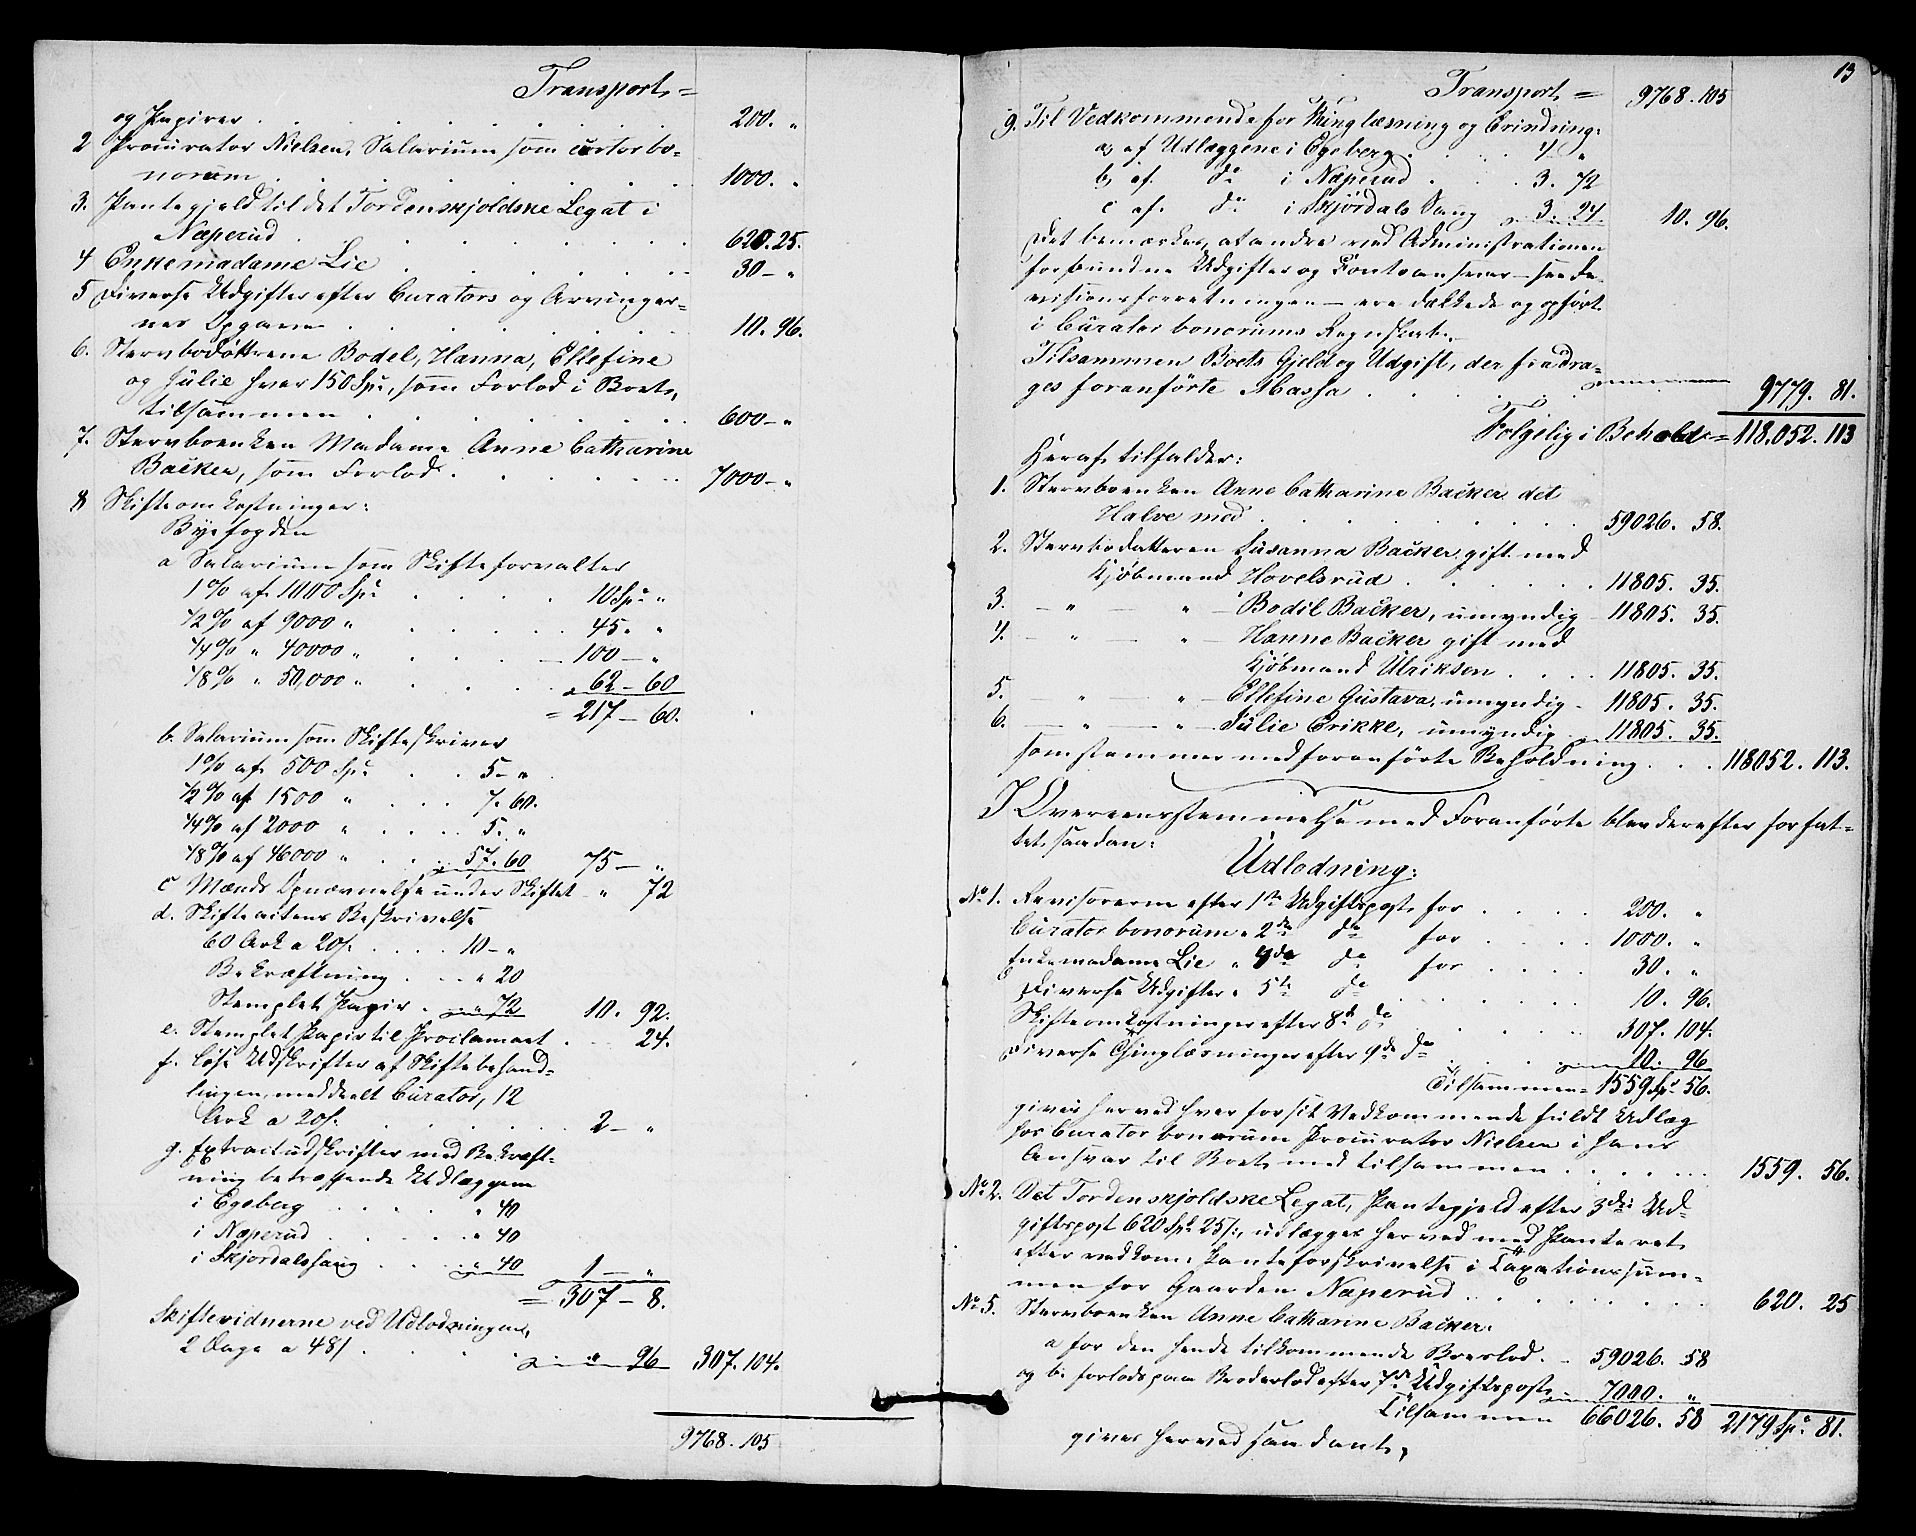 Transport =
og Papirer . . . 200. "
2 Procurator Nielsen, Salarium som curator bo-
norum . . . 1000. "
3. Pantegjeld til det Tordenskjoldske Legat i
Næperud . . . 620. 25.
4 Enkemadame Lie . . . 30 – "
5 Diverse Udgifter efter Curators og Arvinger-
nes Opgave . . . 10. 96.
6. Stervbodøttrene Bodel, Hanna, Ellefine
og Julie hver 150 Spd, som Forlod i Boet,
tilsammen . . . 600 – "
7. Stervboenken Madame Anne Catharine
Backer, som Forlod . . . 7000 – "
8 Skifteomkostninger:
Byefogden
a Salarium som Skifteforvalter
1 % af 1000 Spd . . . 10 Spd "
1/2 % af 9000 " . . . 45. "
1/4 % " 40000 " . . . 100 – "
1/8 % " 50,000 " . . . 62 – 60
= 217 – 60.
b. Salarium som Skifteskriver
1 % af 500 Spd . . . 5 – "
1/2 % af 1500 " . . . 7. 60.
1/4 % af 2000 " . . . 5. "
1/8 % af 46000 " . . . 57. 60 75 – "
c Mænds Opnævnelse under Skiftet – " 72
d. Skifteactens Beskrivelse
60 Ark a 20 s. . . . 10 – "
Bekræftning . . . " 20
Stemplet Papir . " 72 10. 92.
e. Stemplet Papir til Proclamaet . . . 24.
f. Løse Udskrifter af Skiftebehand-
lingen, meddeelt Curator, 12
Ark a 20 s. . . . 2 – "
g. Extractudskrifter med Bekræft-
ning betræffende Udlæggene
i Egeberg . . . " 40
i Næperud . . . " 40
i Skjørdalssaug . . . " 40 1 – "
= 307 – 8.
Skiftevidnerne ved Udlodningen,
2 Dage a 48 s . . . " 96 307. 104.
9768. 105
13
Transport = 9768. 105
9. Til Vedkommende for Thinglæsning og Erindring:
a, af Udlæggene i Egeberg . . . 4 "
b, af do i Næperud . . . 3. 72
c af do i Skjørdals Saug 3. 24. 10. 96.
Det bemærkes, at andre ved Administrationen
forbundne Udgifter og Contraansvar – see De-
cisionsforretningen – ere dækkede og opført
i Curator bonorums Regnskab. –
Tilsammen Boets Gjeld og Udgift, der fradra-
ges foranførte Massa . . . 9779. 81.
Følgelig i Behold = 118.052. 113
Heraf tilfalder:
1. Stervboenken Anne Catharine Backer det
Halve med . . . 59026. 58.
2. Stervbodatteren Susanna Backer gift med
Kjøbmand Hovelsrud . . . 11805. 35.
3. – " – " – Bodil Backer, umyndig – 11805. 35.
4. – " – " – Hanne Backer gift med
Kjøbmand Ulriksen . . . 11805. 35.
5. " – " – Ellefine Gustava, umyndig – 11805. 35.
6. – " – " – Julie Erikke, umyndig – 11805. 35.
som stemmer med foranførte Beholdning . . . 118052. 113.
I Overeensstemmelse med Foranførte blev derefter forfat-
tet saadan:
Udlodning:
No 1. Revisorerne efter 1ste Udgiftspost for . . . 200. "
Curator bonorum " 2de do for . . . 1000. "
Enkemadame Lie " 4de do for . . . 30. "
Diverse Udgifter " 5te do . . . 10. 96.
Skifteomkostninger efter 8de do . . . 307. 104.
Diverse Thinglæsninger efter 9de do . . . 10. 96
Tilsammen = 1559 Spd 56.
gives herved hver for sit Vedkommende fuldt Udlæg
hos Curator bonorum Procurator Nielsen i hans
Ansvar til Boet med tilsammen . . . 1559. 56.
No 2. Det Tordenskjoldske Legat, Pantegjeld efter 3die Ud-
giftspost 620 Spd 25 s, udlægges herved med Panteret
efter vedkom. Panteforskrivelse i Taxationssum-
men for Gaarden Næperud . . . 620. 25
No 5. Stervboenken Anne Catharine Backer:
a for den hende tilkommende Boeslod . – 59026. 58
og b. forlods paa Broderlod efter 7de Udgiftspost – 7000. "
Tilsammen 66026. 58 2179 Spd. 81.
gives herved saadant,